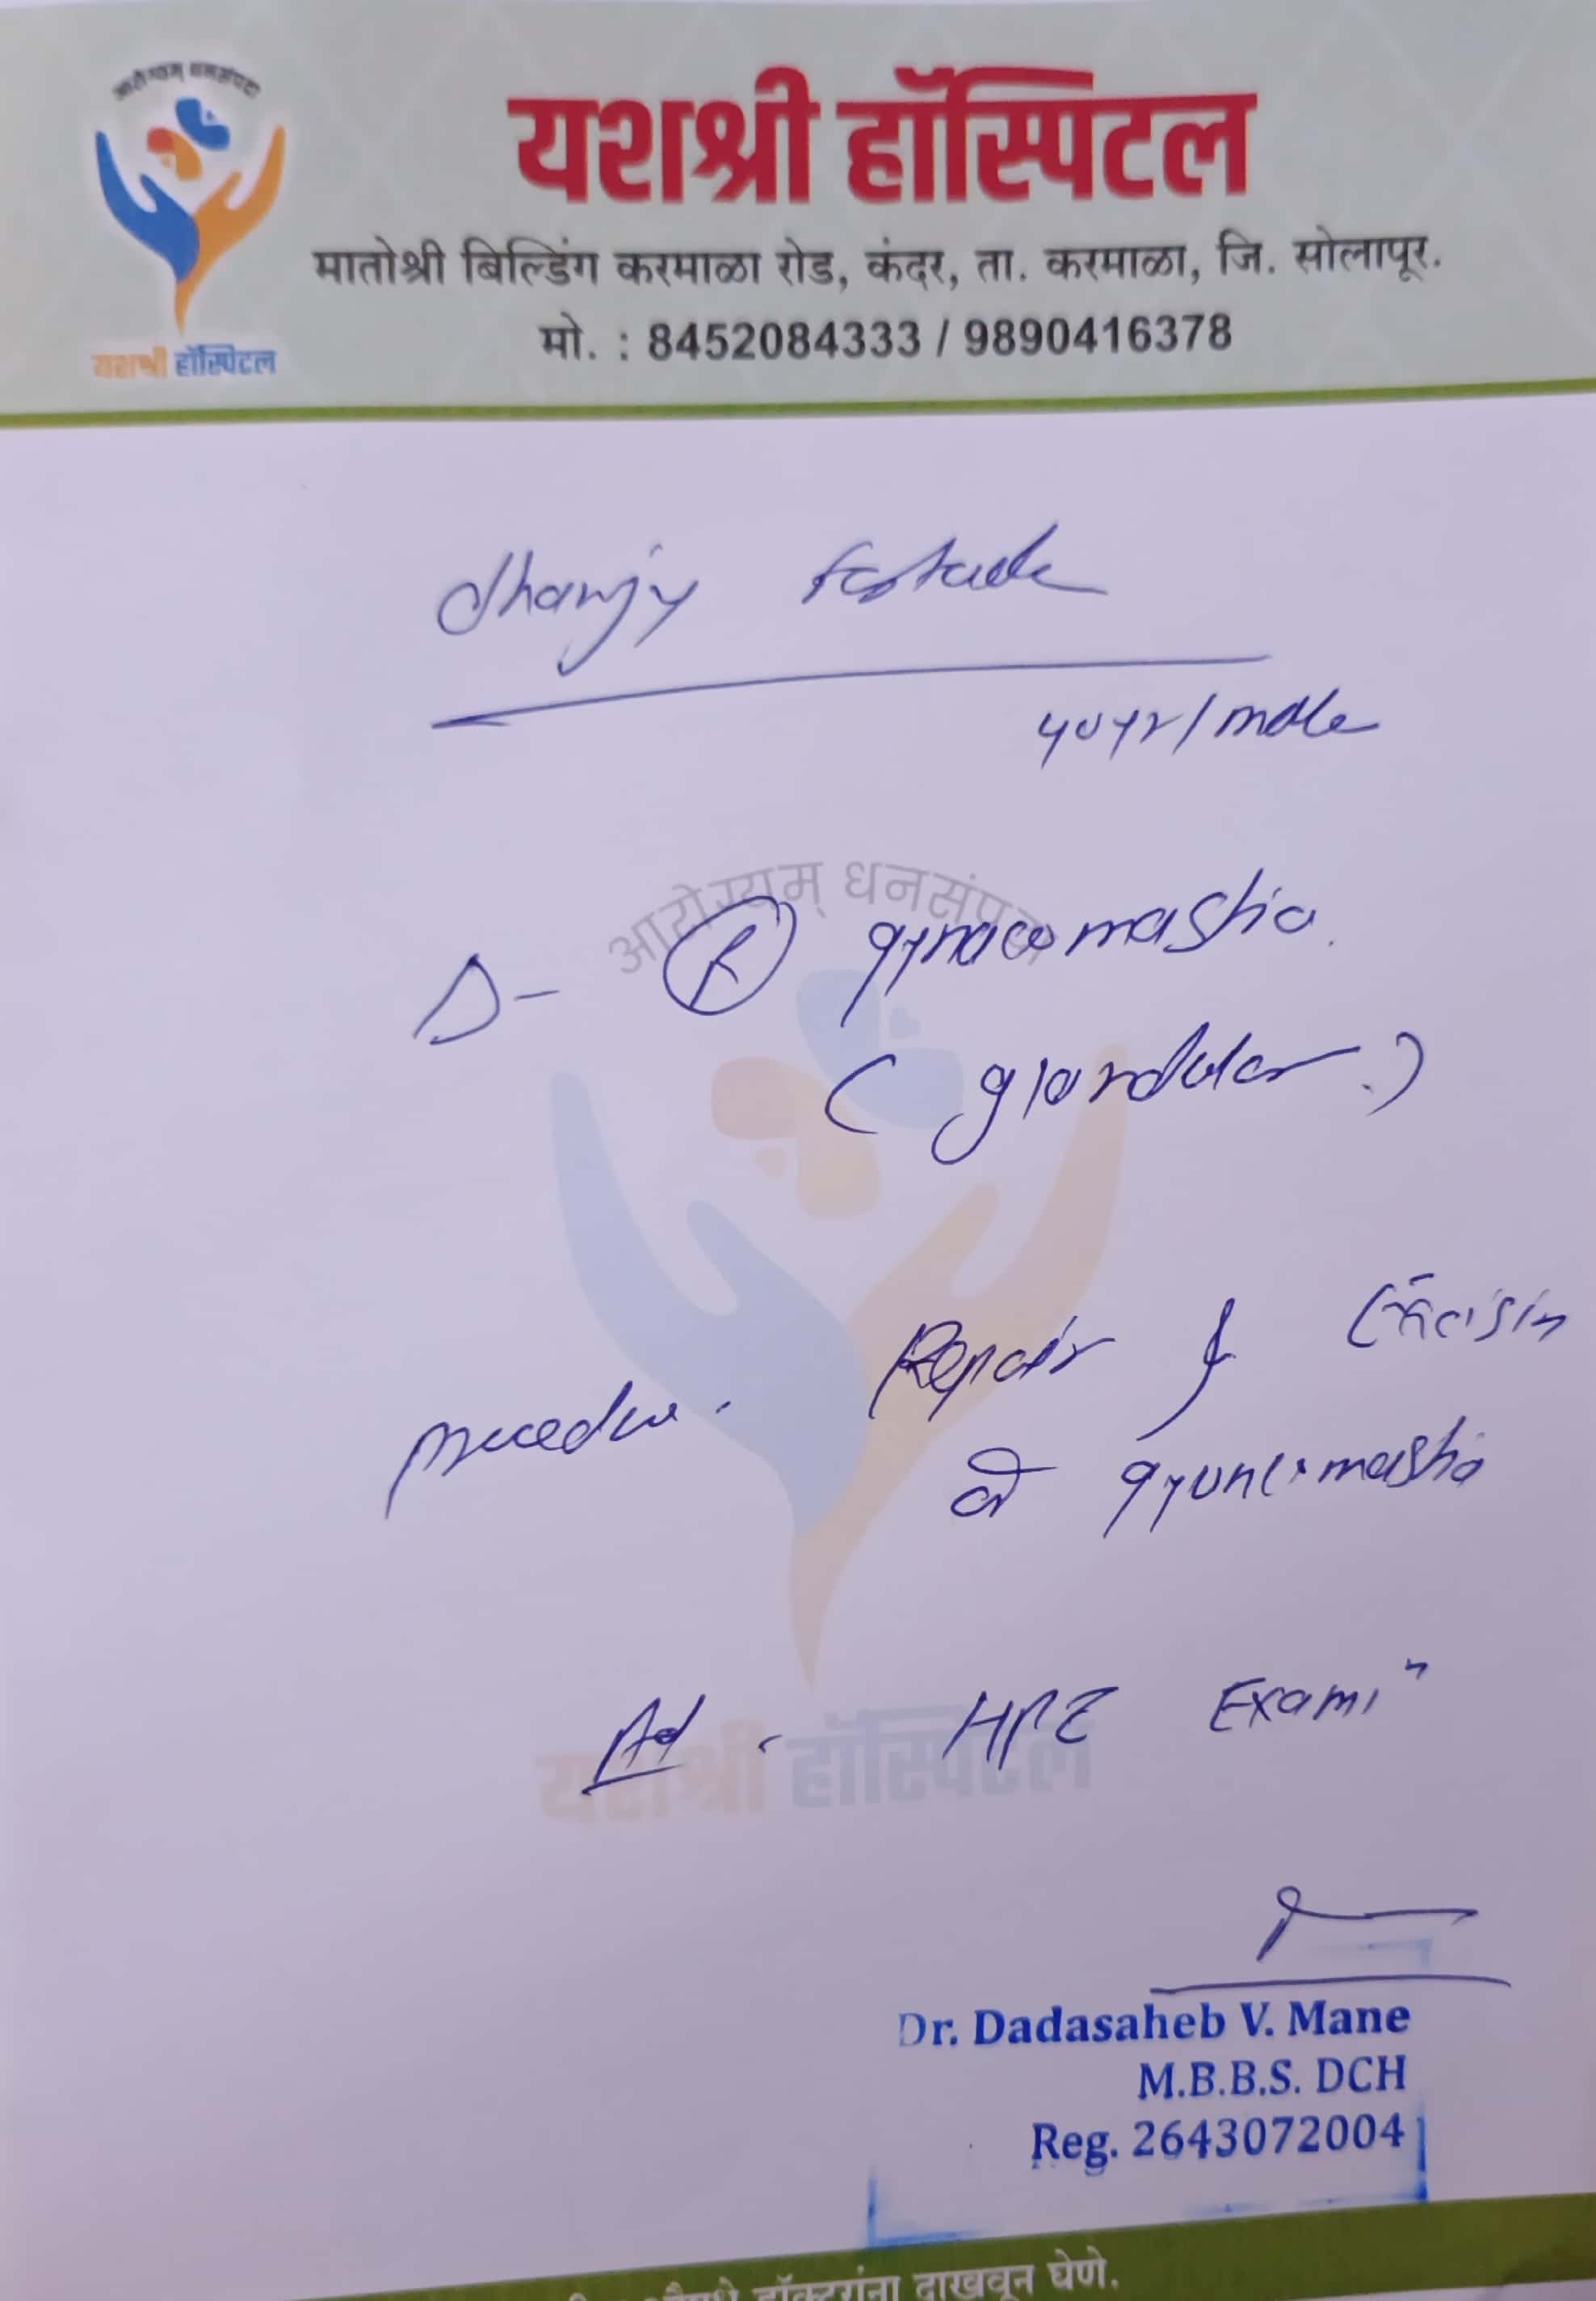 आरोग्यम् धनसंपदा
यशश्री हॉस्पिटल
यशश्री हॉस्पिटल
मातोश्री बिल्डिंग करमाळा रोड, कंदर, ता. करमाळा, जि. सोलापूर.
मो. : 8452084333 / 9890416378
40 yr / male
आरोग्यम् धनसंपदा
Δ - Ⓡ gynacomastia.
( glandular . )
procedure . Repair & Excision
of
Ad - HPE Exami ⁿ
यशश्री हॉस्पिटल
Dr. Dadasaheb V. Mane
M.B.B.S. DCH
Reg. 2643072004
डॉक्टरांना दाखवून घेणे.